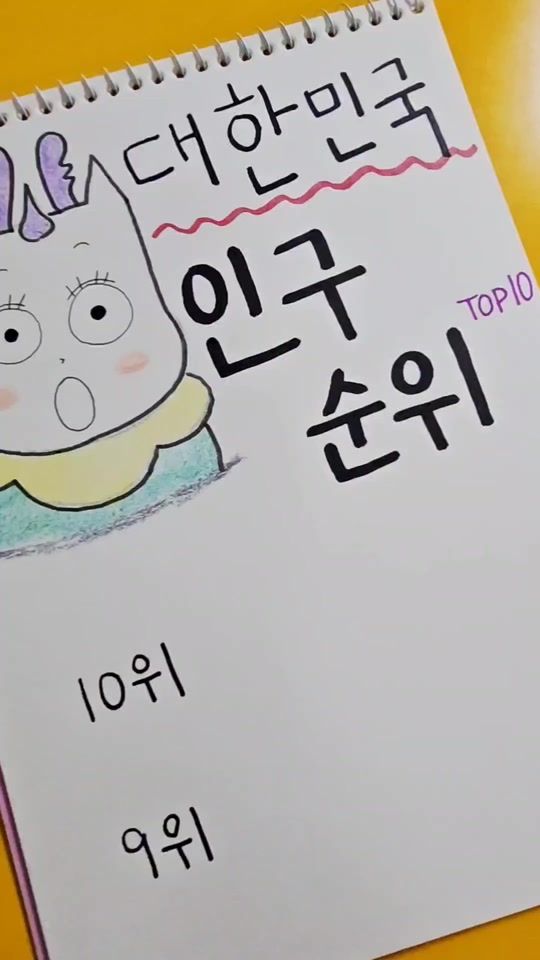 대한민국
인구
TOP10
순위
10위
9위